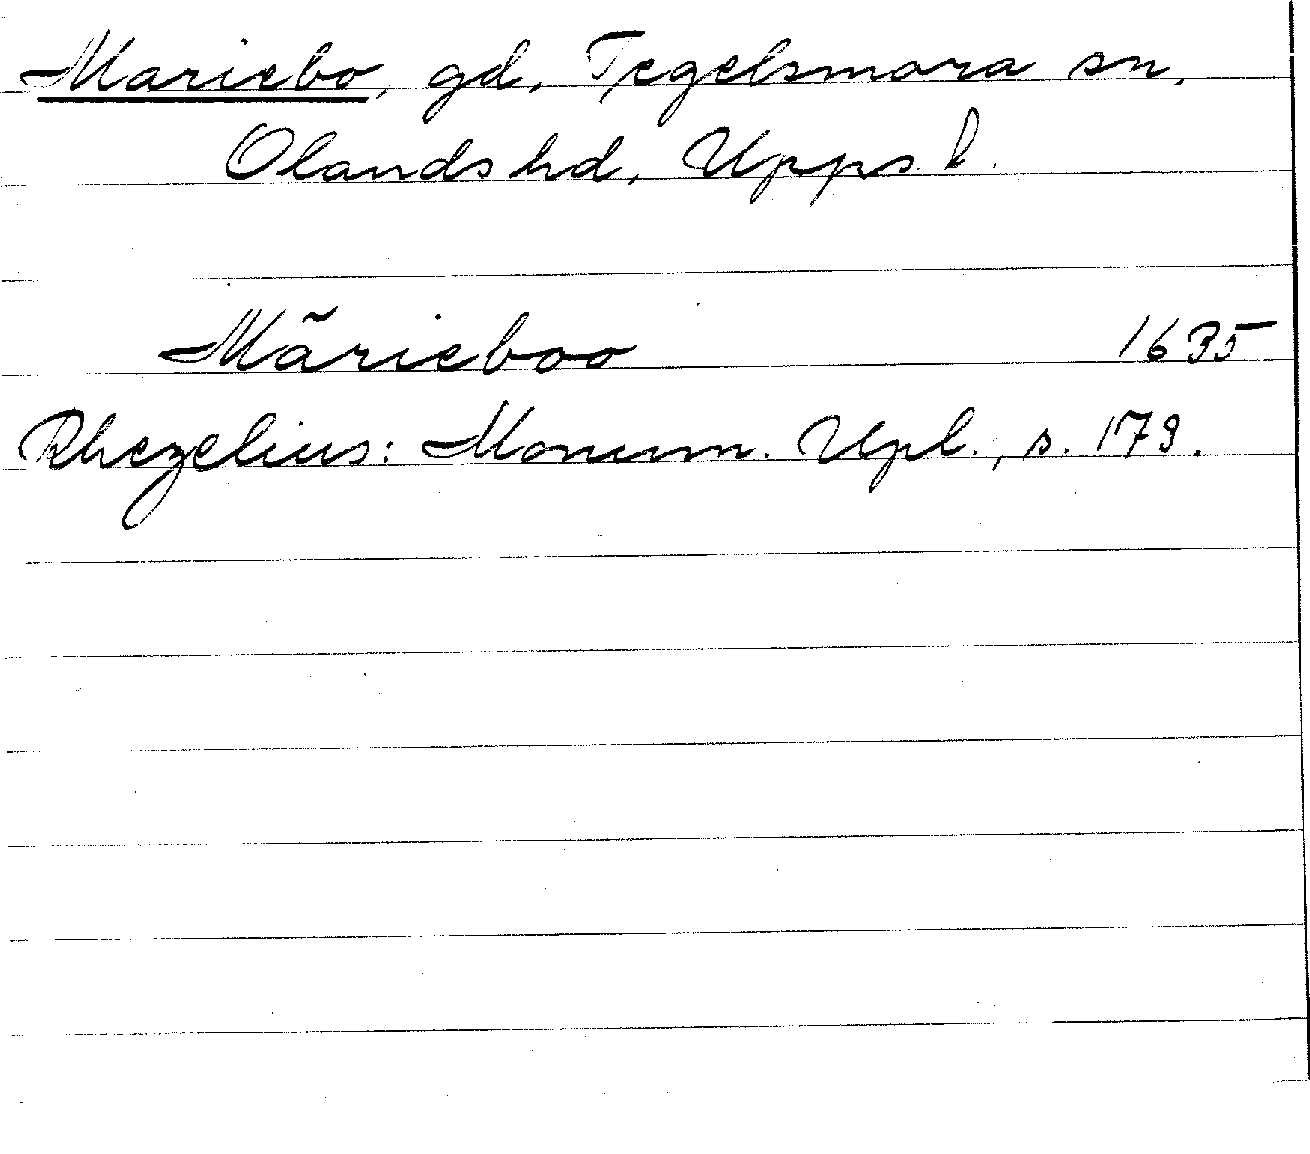 Mariebo, gd, Tegelsmora sn,
Olands hd, Upps. l.
Mãrieboo 1635
Rhezelius: Monum. Upl., s. 179.